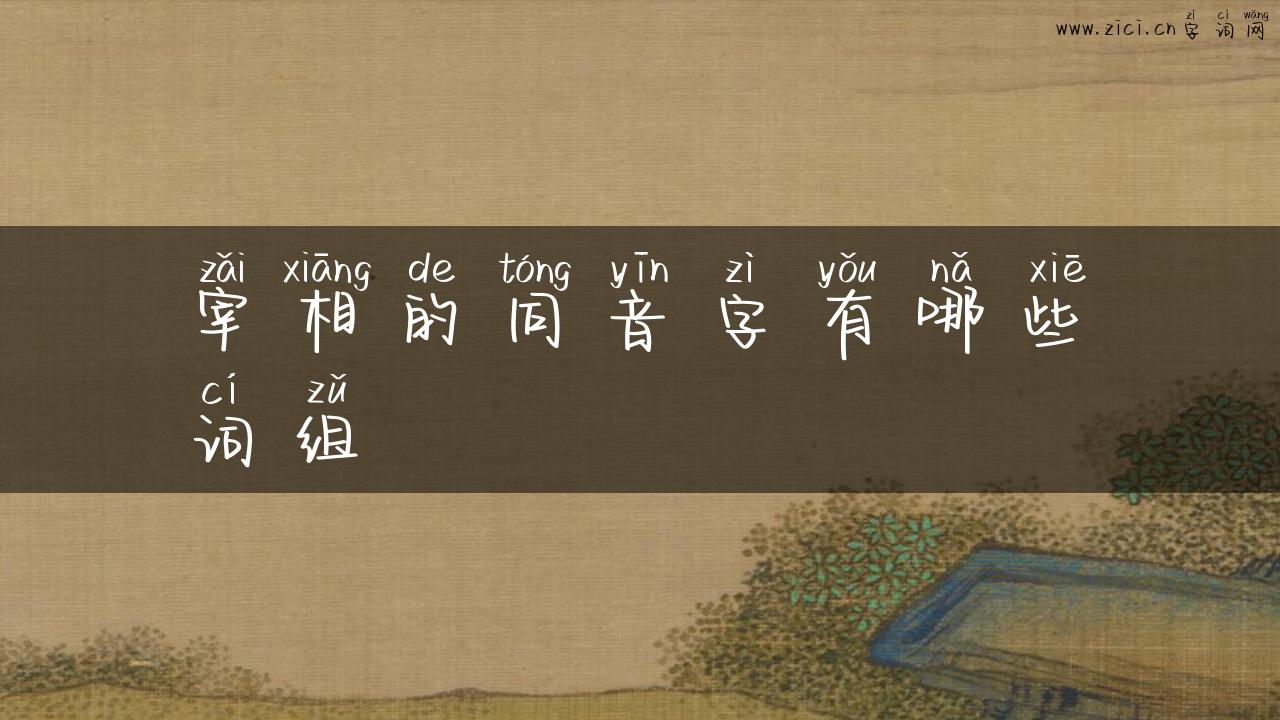 zì cí wǎng
www.zici.cn 字词网
zǎi xiāng de tóng yīn zì yǒu nǎ xiē
宰相的同音字有哪些
cí zǔ
词组